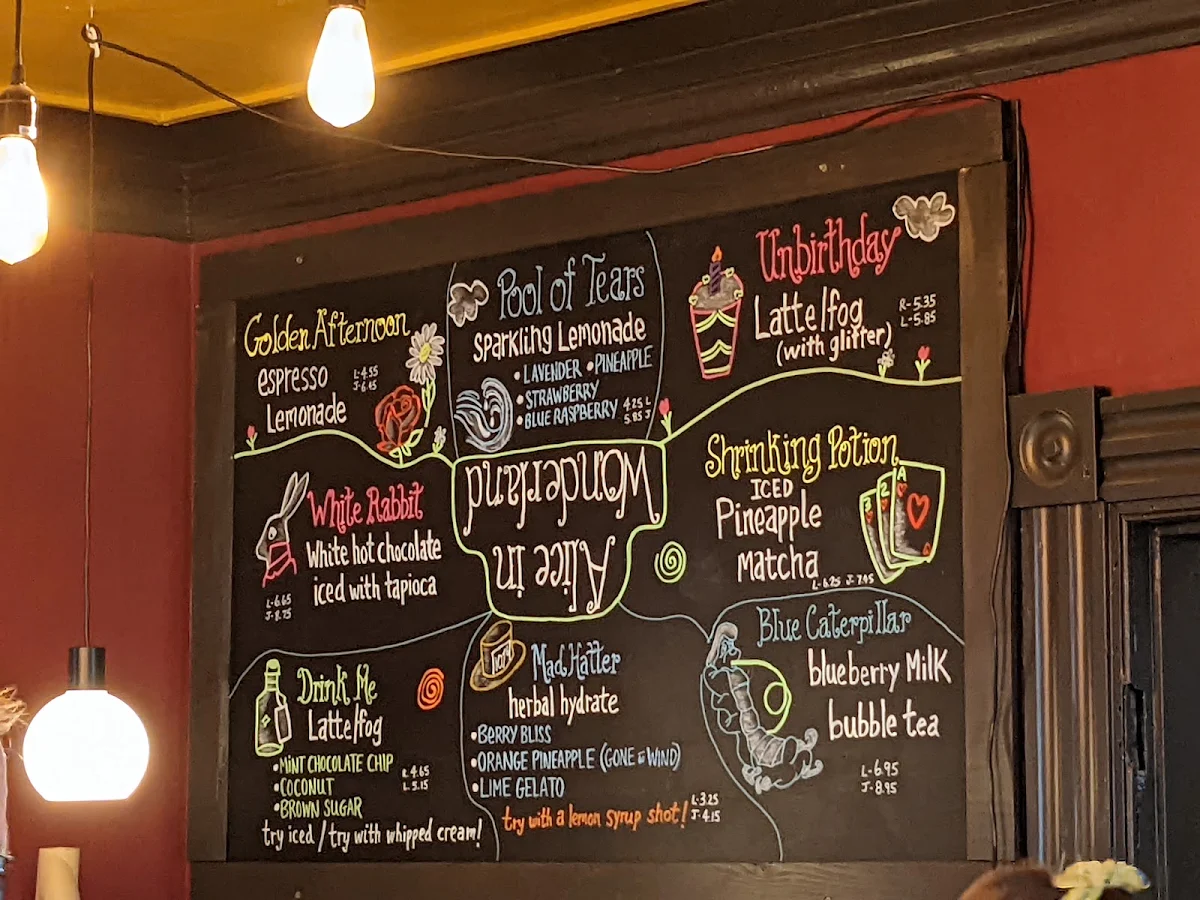 Golden Afternoon
espresso
Lemonade
L-4.55
J-6.45
Pool of Tears
Sparkling Lemonade
• LAVENDER • PINEAPPLE
• STRAWBERRY
• BLUE RASPBERRY
4.25 L
5.85 J
Unbirthday
Latte/fog
(with glitter)
R-5.35
L-5.85
White Rabbit
White hot chocolate
iced with tapioca
L-6.65
J-8.75
Alice in
Wonderland
Shrinking Potion
ICED
Pineapple
Matcha
L-6.25 J-7.95
3
2
A
Drink Me
Latte/fog
• MINT CHOCOLATE CHIP
• COCONUT
• BROWN SUGAR
R 4.65
L-5.15
try iced / try with whipped cream!
Mad Hatter
herbal hydrate
• BERRY BLISS
• ORANGE PINEAPPLE (GONE WIND)
• LIME GELATO
try with a lemon syrup shot!
L-3.25
J-4.15
Blue Caterpillar
blueberry Milk
bubble tea
L-6.95
J-8.95